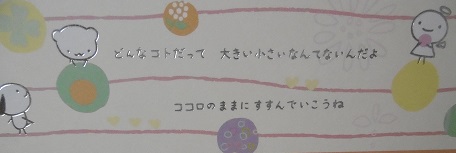 どんなコトだって 大きい小さいなんてないんだよ
ココロのままにすすんでいこうね